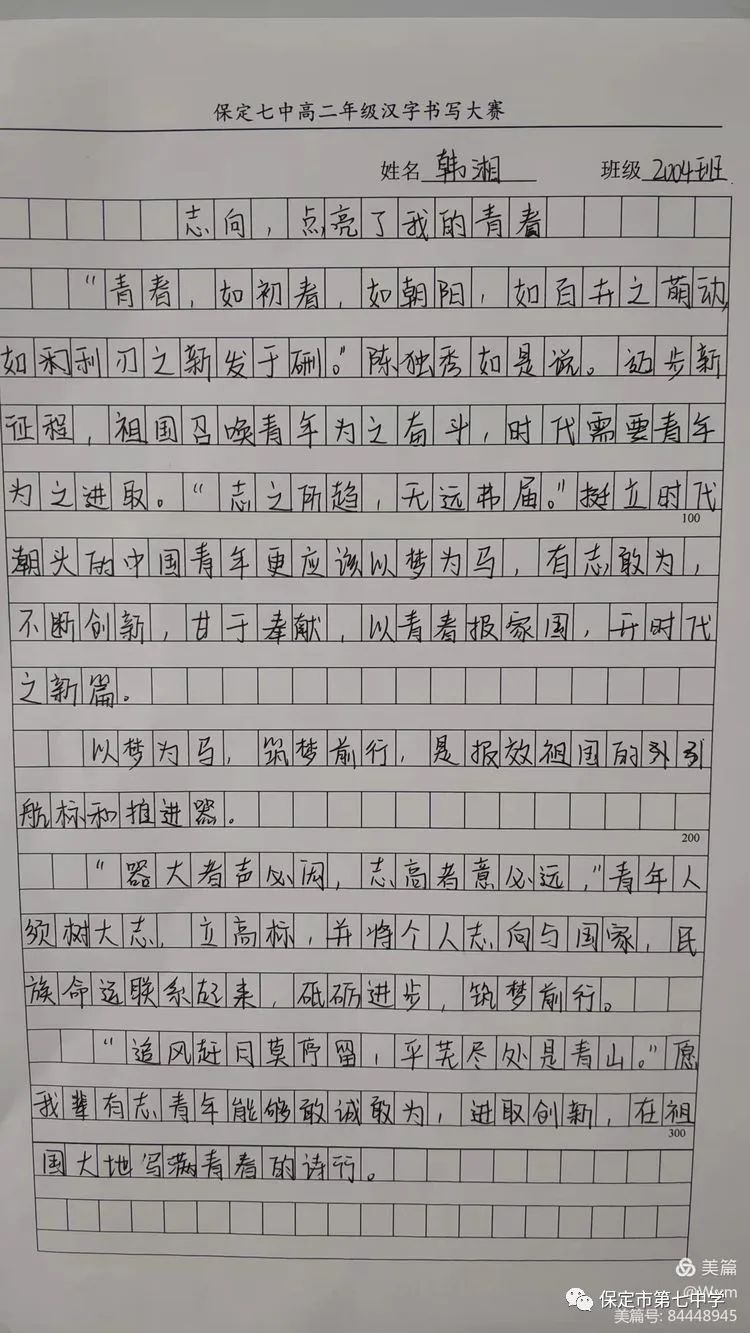 保定七中高二年级汉字书写大赛
姓名 韩湘 班级 2004班
志向，点亮了我的青春
“青春，如初春，如朝阳，如百卉之萌动，
如利刃之新发于硎。”陈独秀如是说。迈步新
征程，祖国召唤青年为之奋斗，时代需要青年
为之进取。“志之所趋，无远弗届。”挺立时代
100
潮头的中国青年更应该以梦为马，有志敢为，
不断创新，甘于奉献，以青春报家国，开时代
之新篇。
以梦为马，筑梦前行，是报效祖国的引
航标和推进器。
200
“器大者声必闳，志高者意必远，”青年人
须树大志，立高标，并将个人志向与国家，民
族命运联系起来，砥砺进步，筑梦前行。
“追风赶月莫停留，平芜尽处是青山。”愿
我辈有志青年能够敢诚敢为，进取创新，在祖
300
国大地写满青春的诗行。
美篇
@Wxm
保定市第七中学
美篇号: 84448945